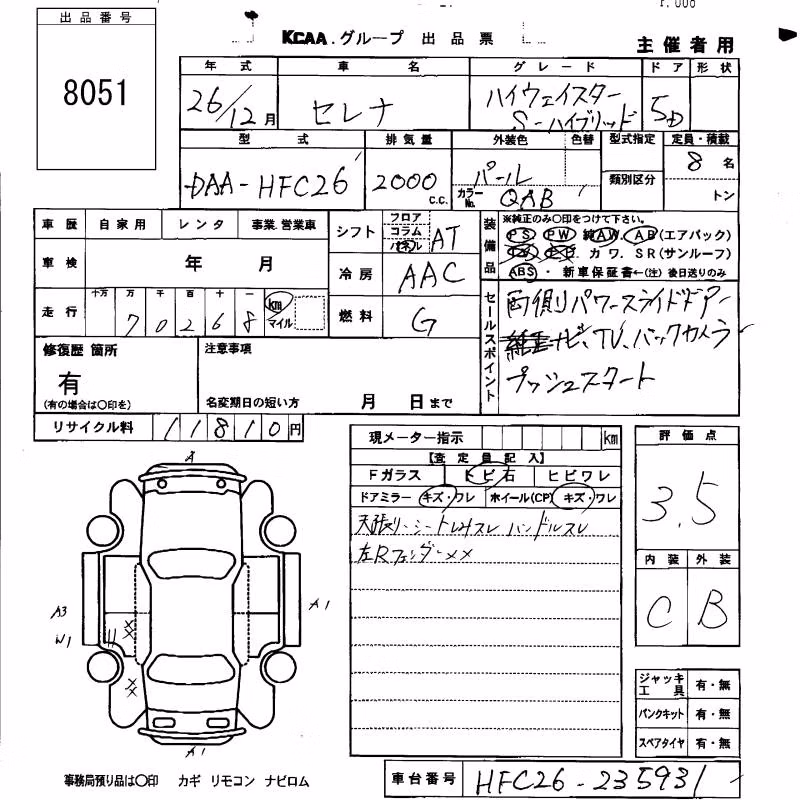 出品番号
8051
KCAA.グループ 出品票
主催者用
年式 車名 グレード ドア 形状
26/12月 セレナ ハイウェイスター S-ハイブリッド 5D
型式 排気量 外装色 色替 型式指定 定員・積載
DAA-HFC26 2000 C.C. パール カラーNo. QAB 類別区分 8名 トン
車歴 自家用 レンタ 事業.営業車
車検 年 月
走行 十万 万 千 百 十 一 70268 km マイル
シフト フロア コラム パネル AT
冷房 AAC
燃料 G
装備品 ※純正のみ〇印をつけて下さい。
PS PW 純AW. AB(エアバック)
カワ. SR(サンルーフ)
ABS・新車保証書←(注)後日送りのみ
セールスポイント 両側パワースライドドアー
ナビ、TV、バックカメラ
プッシュスタート
修復歴 箇所 注意事項
有
(有の場合は〇印を) 名変期日の短い方 月 日まで
リサイクル料 11810円
現メーター指示 km
【査定員記入】
Fガラス トビ石 ヒビワレ
ドアミラー キズ・ワレ ホイール(CP) キズ・ワレ
天張り、シートしみスレ ハンドルスレ
左Rフェンダー××
評価点
3.5
内装 外装
C B
ジャッキ工具 有・無
パンクキット 有・無
スペアタイヤ 有・無
A
A3
W1
A1
A1
事務局預り品は〇印 カギ リモコン ナビロム
車台番号 HFC26-235931